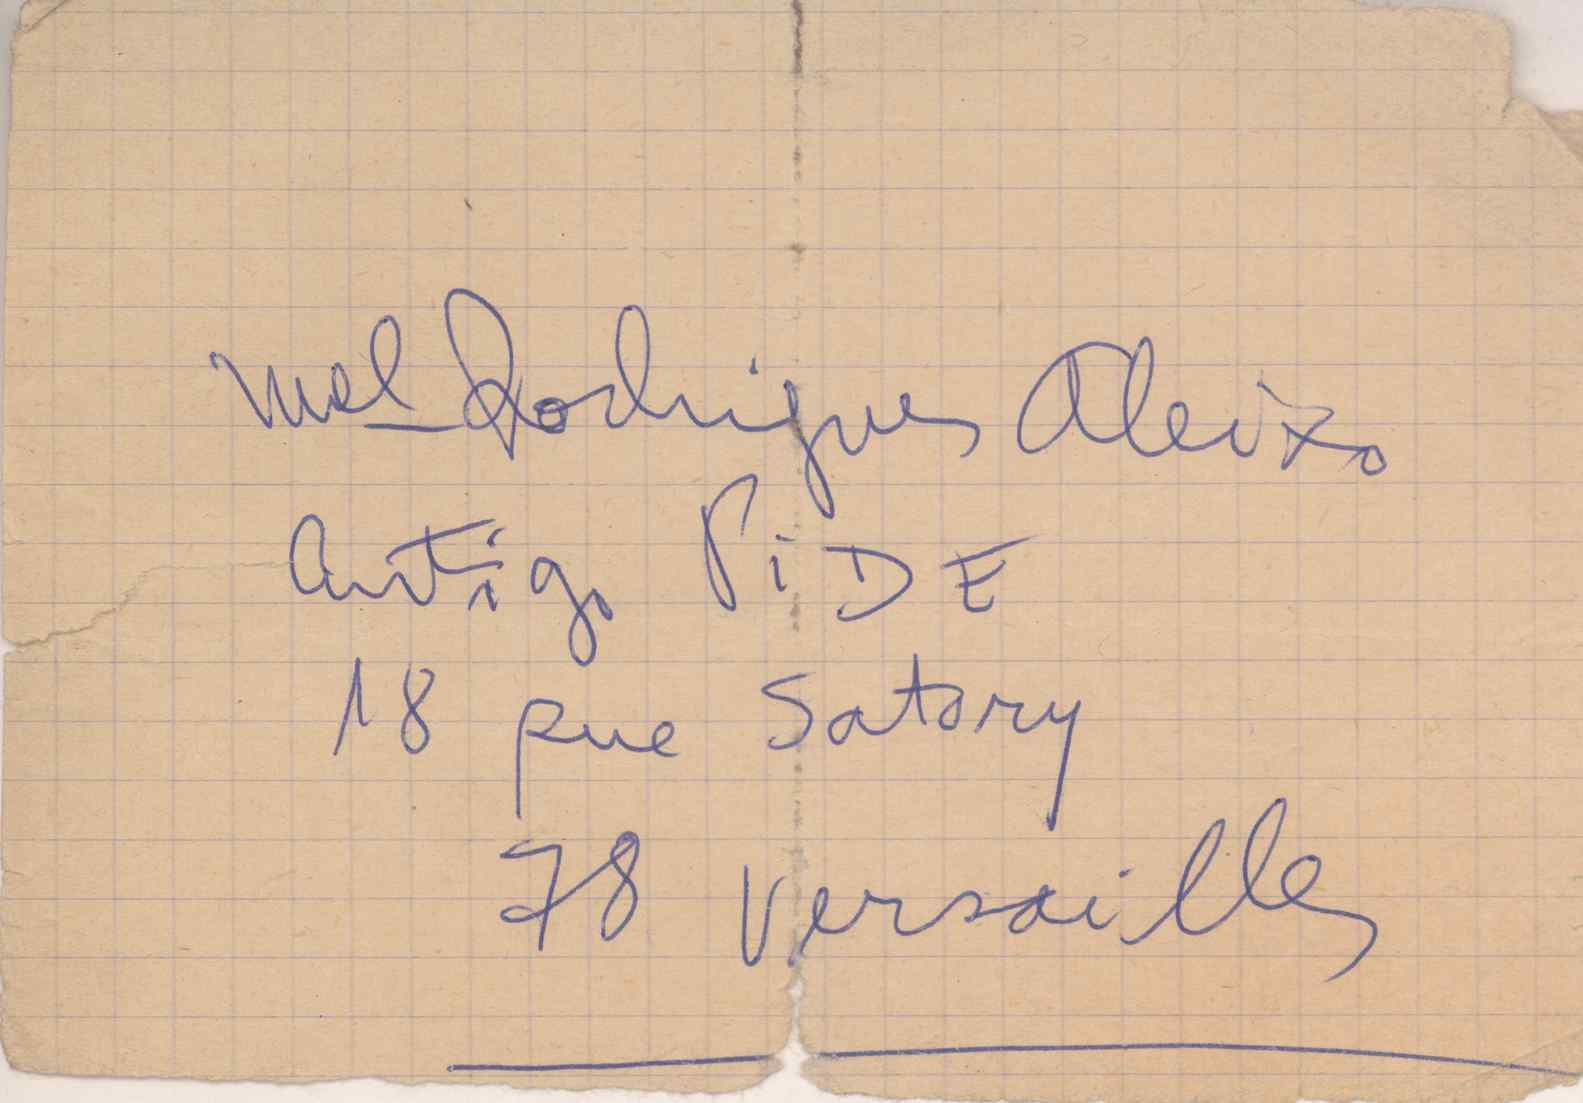 Mel Rodrigues Aleixo
Antigo PiDE
18 rue Satory
78 Versailles